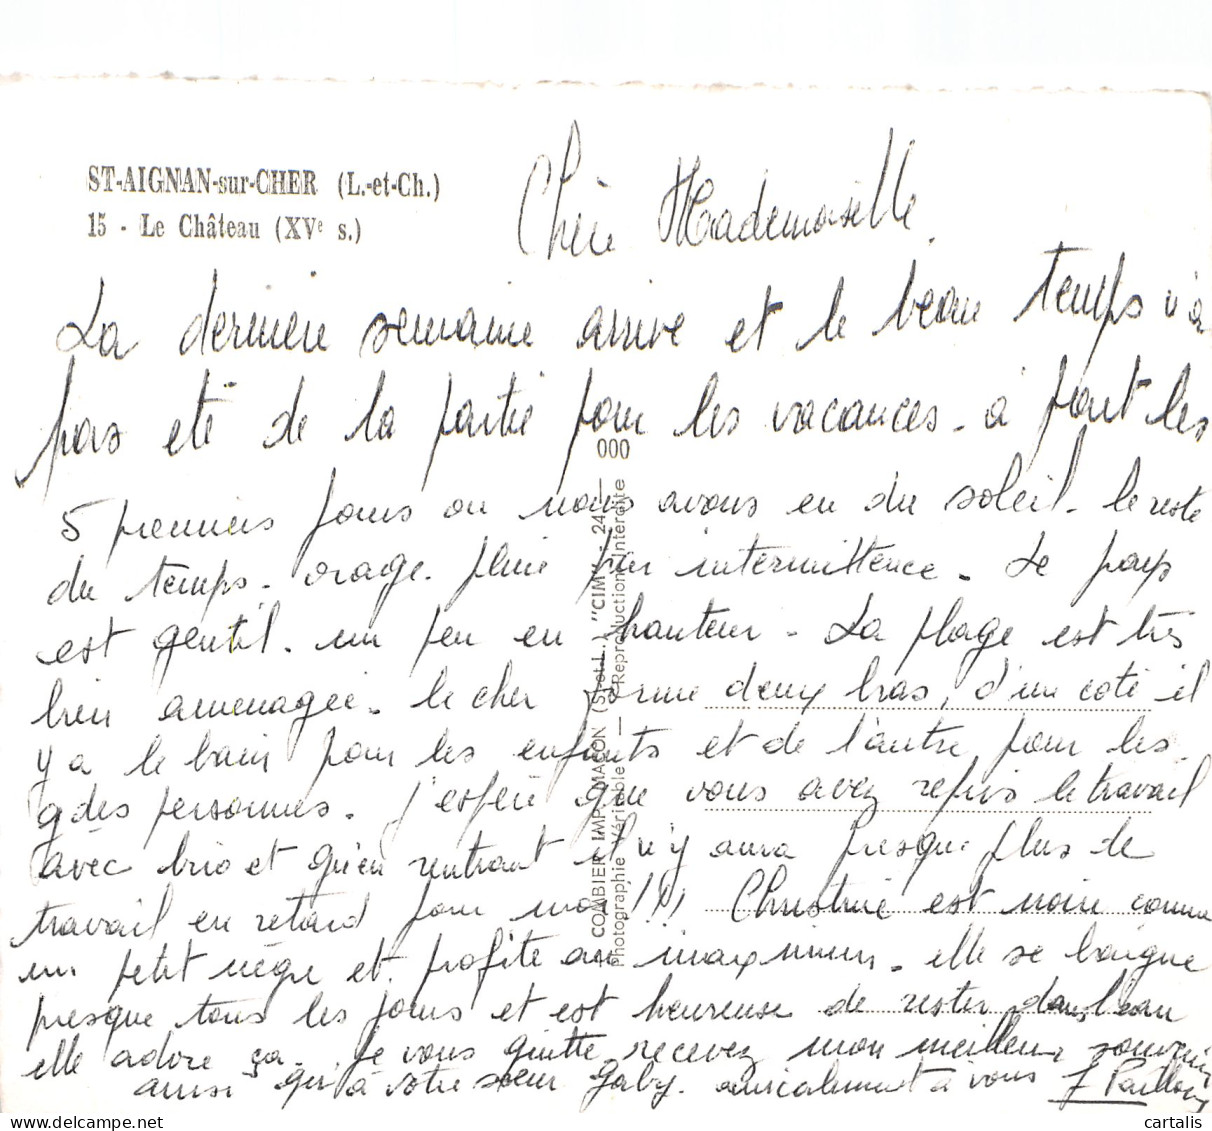 ST-AIGNAN-sur-CHER (L.-et-Ch.)
15 - Le Château (XVe s.)
Chère Mademoiselle.
La dernière semaine arrive et le beau temps n'a
pas été de la partie pour les vacances - à part les
5 premiers jours ou nous avons eu du soleil - le reste
du temps - orage - pluie par intermittence - Le pays
est gentil. un peu en hauteur - La plage est très
bien amenagée. le cher forme deux bras, d'un coté il
y a le bain pour les enfants et de l'autre pour les
gdes personnes. j'espère que vous avez repris le travail
avec brio et qu'en rentrant il n'y aura presque plus de
travail en retard pour moi !!! Christine est noire comme
un petit nègre et profite au maximum - elle se baigne
presque tous les jours et est heureuse de rester dans l'eau
elle adore ça. Je vous quitte, recevez mon meilleur souvenir
ainsi qu'à votre soeur Gaby. amicalement à vous J
COMBIER IMP. MACON (S.-et-L.) "CIM" - 24 - 000
Photographie Véritable — Reproduction Interdite
cartalis
www.delcampe.net